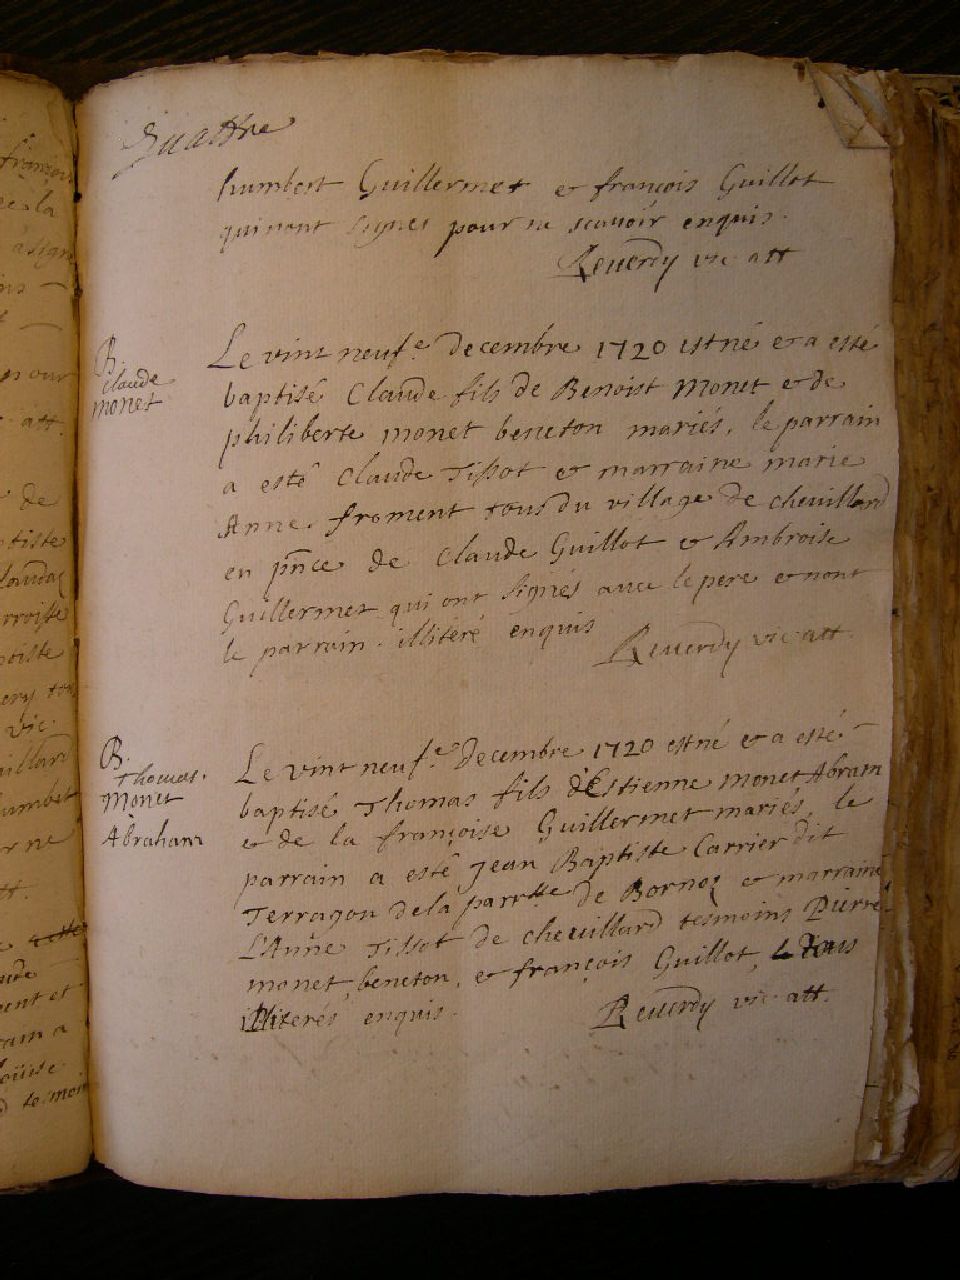 Quattre
humbert Guillermet et françois Guillot
qui nont signes pour ne scavoir enquis.
Reuerdy vic att
B.
Claude
monet
Le vint neuf.e decembre 1720 est né et a esté
baptisé Claude fils de Benoist Monet et de
philiberte monet beneton mariés, le parrain
a esté Claude Tissot et marraine marie
Anne froment tous du village de cheuillard
en pnce de Claude Guillot et Ambroise
Guillermet qui ont signés auec le pere et nont
le parrain illiteré enquis
Reuerdy vic att
B.
Thomas.
Monet
Abraham
Le vint neuf.e decembre 1720 est né et a esté
baptisé Thomas fils d'Estienne monet Abram
et de la françoise Guillermet mariés, le
parrain a esté Jean Baptiste Carrier dit
Terragon de la parrsse de Bornoz et marraine
L'Anne Tissot de cheuillard tesmoins Pierre
monet beneton, et françois Guillot, tous
illiterés enquis.
Reuerdy vic att.